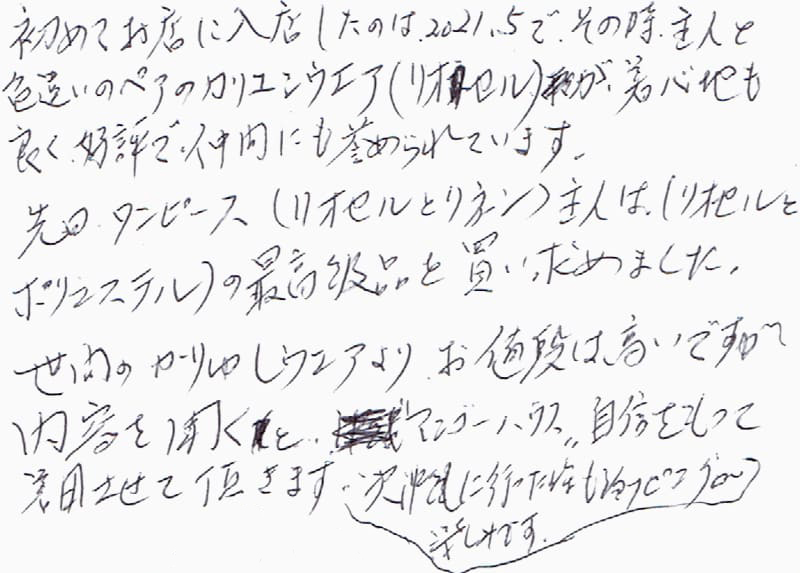 初めてお店に入店したのは、2021、5で、その時、主人と
色違いのペアのカリユシウエア(リオセル)が、着心地も
良く、好評で、仲間にも誉められています。
先日、ワンピース(リオセルとリネン)主人は、(リオセルと
ポリエステル)の最高級品を買い求めました。
世間のかりゆしウエアより、お値段は高いですが
内容を聞くと、"マンゴーハウス"自信をもって
着用させて頂きます。沖縄に行った時もショッピングが
楽しみです。